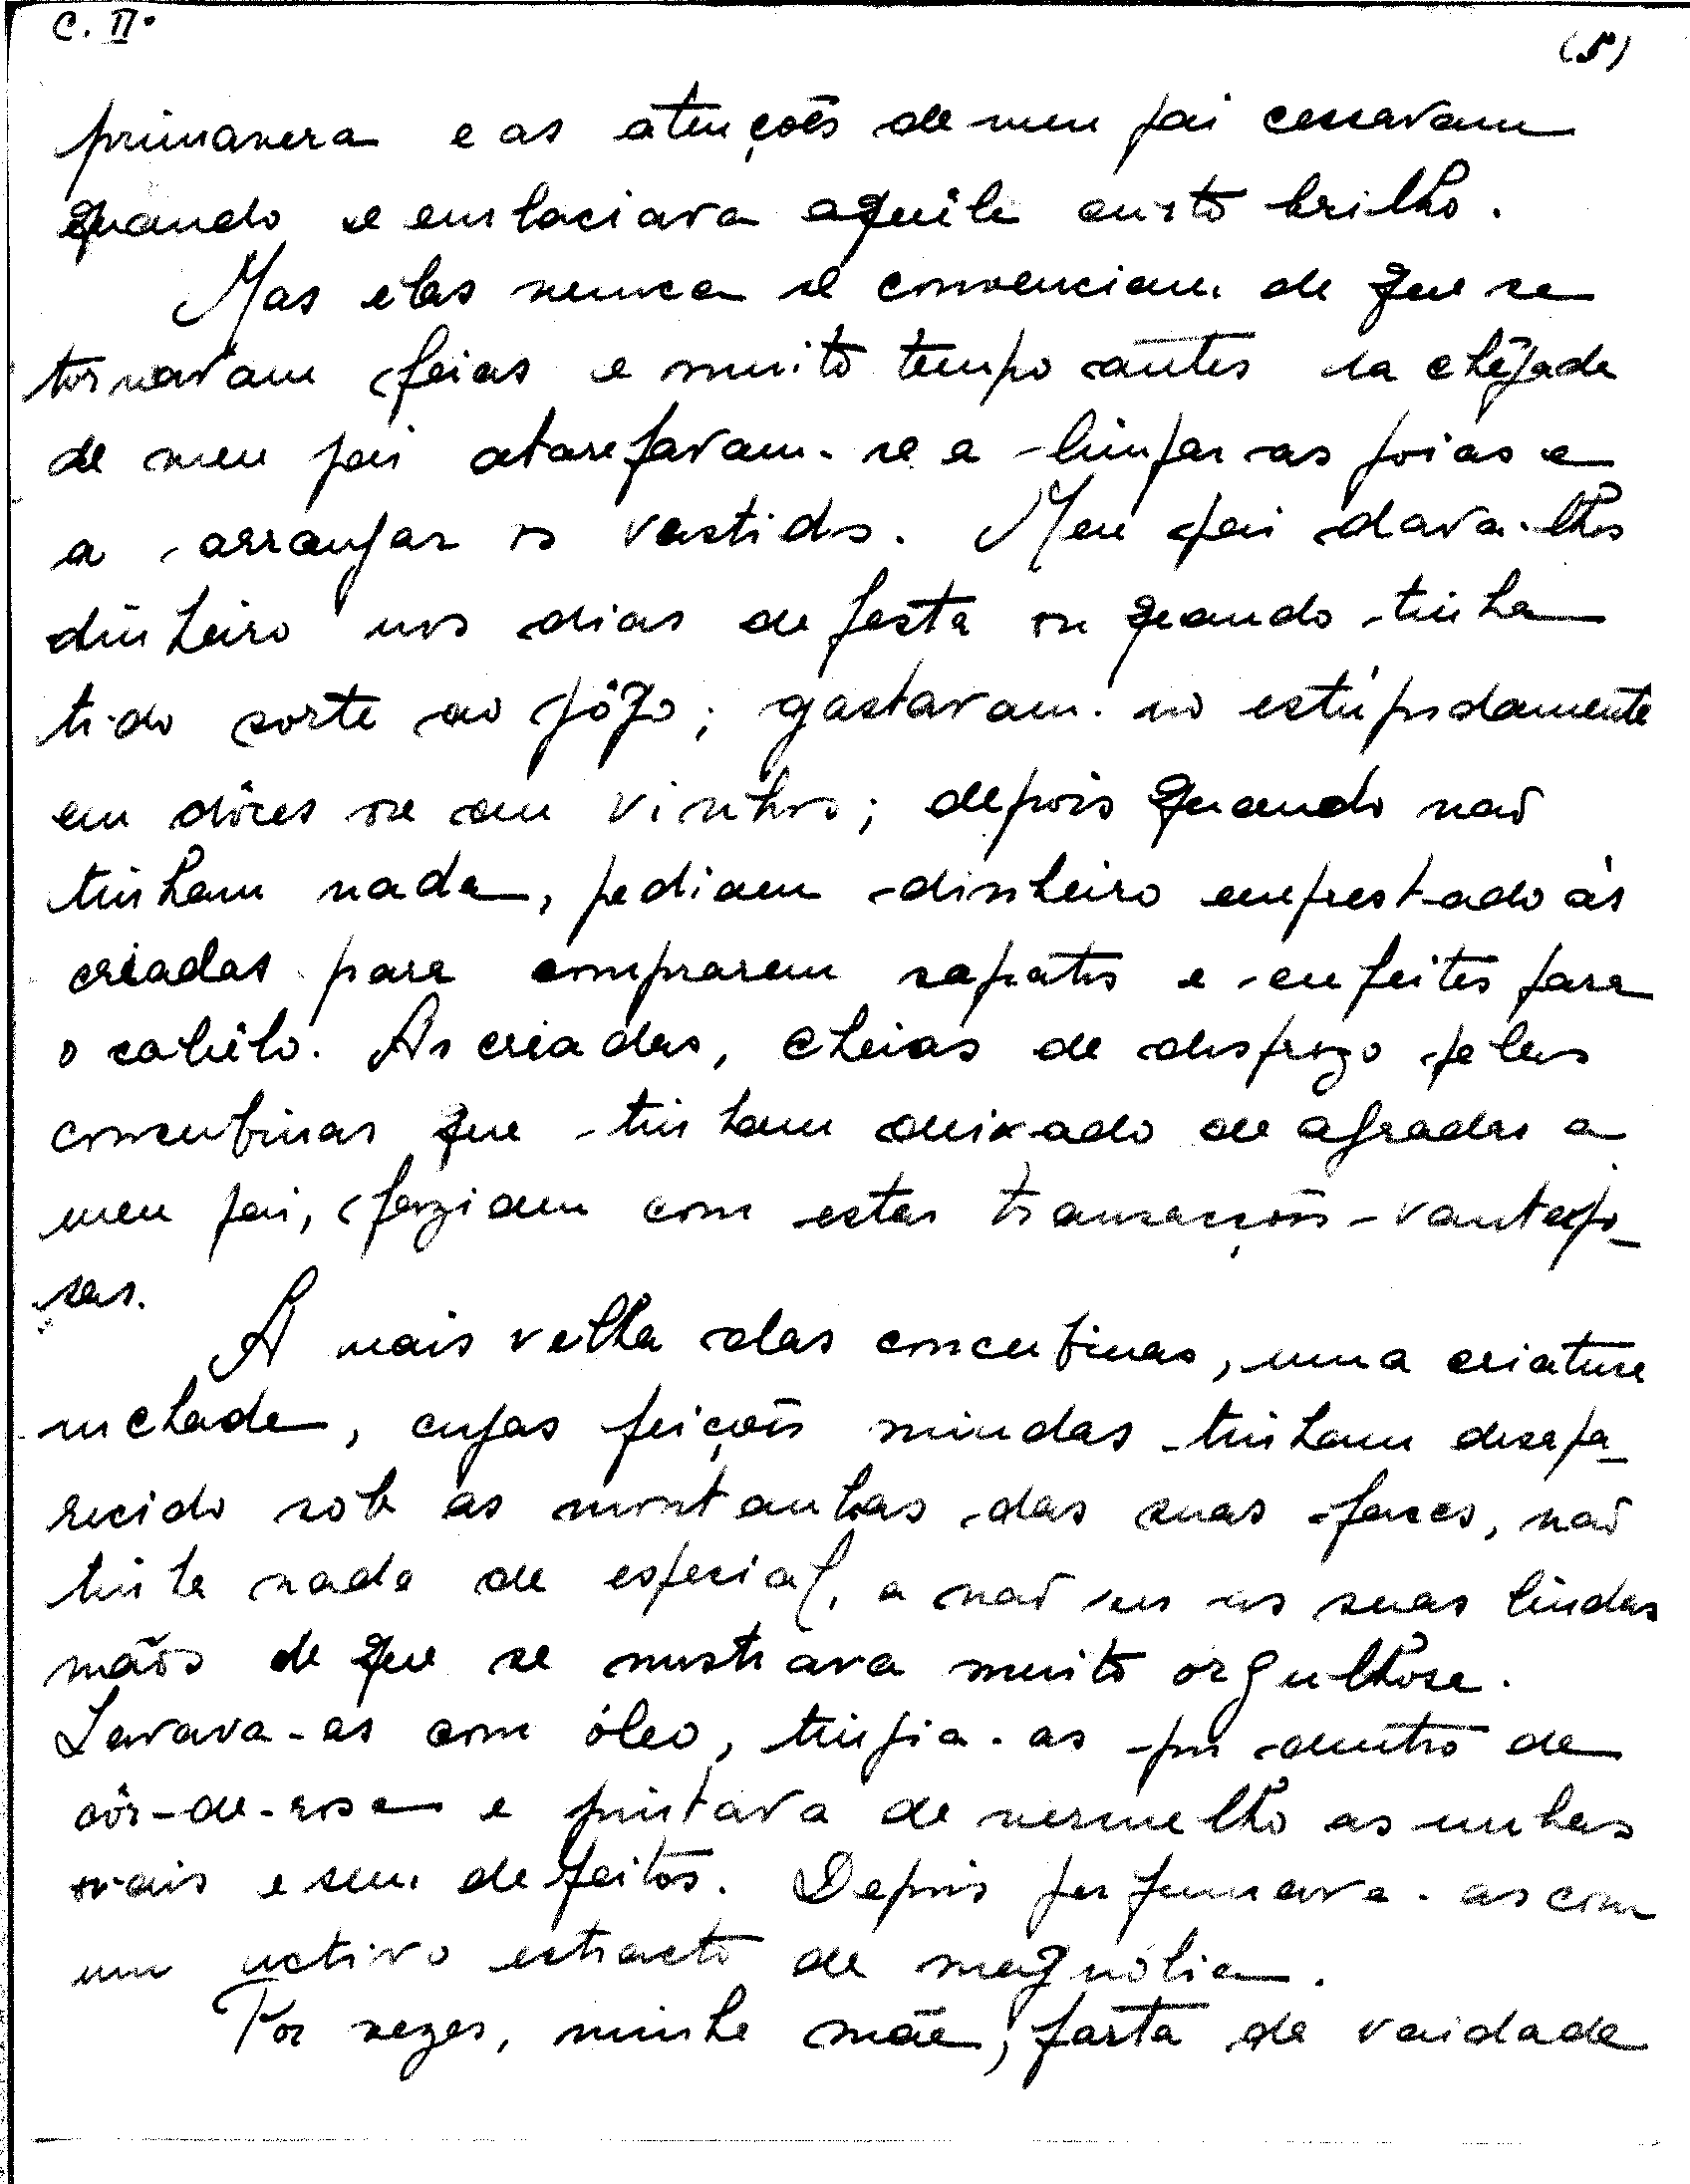 C. IIº
(5)
primavera e as atenções de meu pai cessavam
quando se embaciava aquele curto brilho.
Mas elas nunca se convenciam de que se
tornavam feias e muito tempo antes da chegada
de meu pai atarefavam-se a limpar as joias e
a arranjar os vestidos. Meu pai dava-lhes
dinheiro nos dias de festa ou quando tinha
tido sorte ao jôgo; gastavam-no estúpidamente
em dôces ou em vinhos; depois quando não
tinham nada, pediam dinheiro emprestado às
criadas para comprarem sapatos e enfeites para
o cabêlo. As criadas, cheias de desprezo pelas
concubinas que tinham deixado de agradar a
meu pai, faziam com estas transacções vantajo-
sas.
A mais velha das concubinas, uma criatura
inchada, cujas feições miudas tinham desapa-
recido sob as montanhas das suas faces, não
tinha nada de especial, a não ser as suas lindas
mãos de que se mostrava muito orgulhosa.
Lavava-as com óleo, tingia-as por dentro de
côr-de-rosa e pintava de vermelho as unhas
ovais e sem defeitos. Depois perfumava-as com
um activo extracto de magnólia.
Por vezes, minha mãe, farta de vaidade